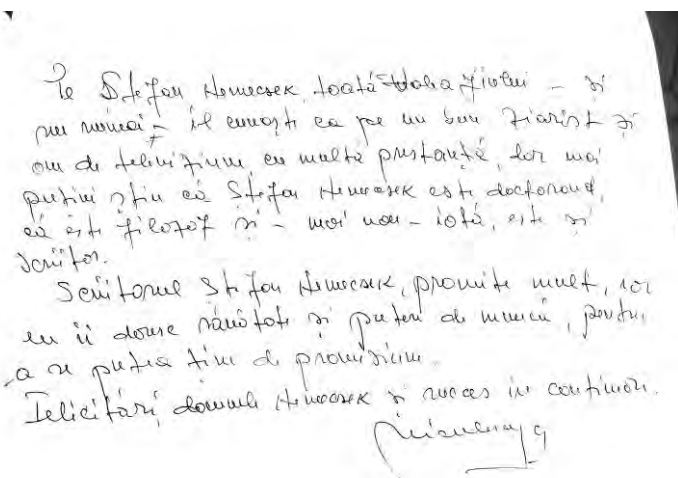 Pe Ștefan Nemecsek, toată Valea Jiului – și
nu numai – îl cunoști ca pe un bun ziarist și
om de televiziune, cu multă prestanță, dar mai
puțini știu că Ștefan Nemecsek este doctorand,
că este filozof și – mai nou – iată, este și
scriitor.
Scriitorul Ștefan Nemecsek, promite mult, iar
eu îi doresc sănătate și putere de muncă, pentru
a se putea ține de promisiune.
Felicitări, domnule Nemecsek și succes în continuare.